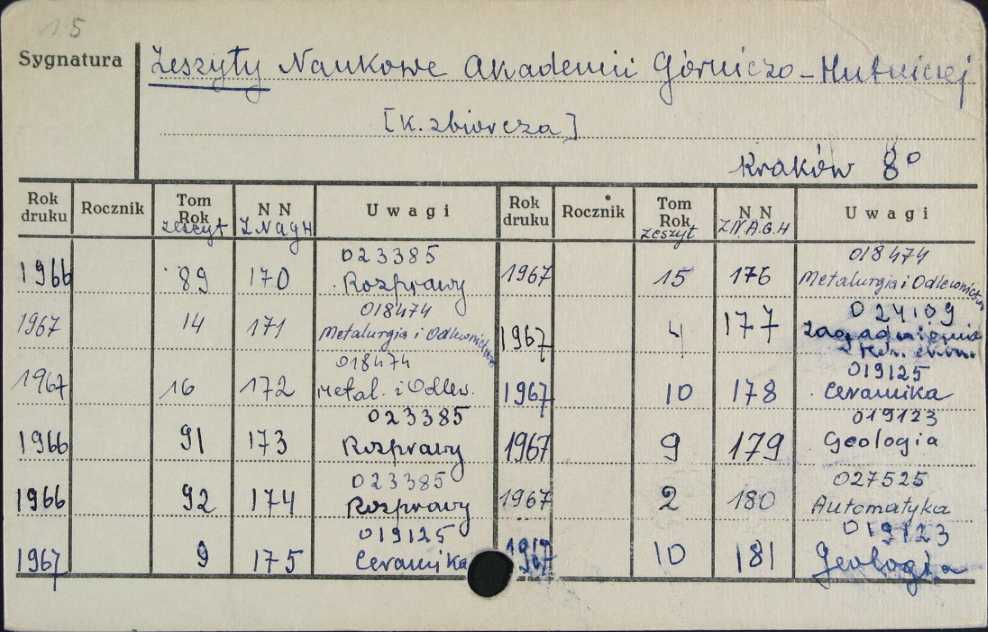 15
Sygnatura
Zeszyty Naukowe Akademii Górniczo-Hutniczej
[K. zbiorcza]
Kraków 8º
Rok druku Rocznik Tom Rok zeszyt N N Z.N.A.G.H Uwagi Rok druku Rocznik Tom Rok zeszyt N N Z.N.A.G.H Uwagi
1966 89 170 023385 Rozprawy 1967 15 176 018474 Metalurgia i Odlewnictwo
1967 14 171 018474 Metalurgia i Odlewnictwo 1967 4 177 024109 Zagadnienia
1967 16 172 018474 Metal. i Odlew. 1967 10 178 019125 Ceramika
1966 91 173 023385 Rozprawy 1967 9 179 019123 Geologia
1966 92 174 023385 Rozprawy 1967 2 180 027525 Automatyka
1967 9 175 019125 Ceramika 1967 10 181 019123 Geologia